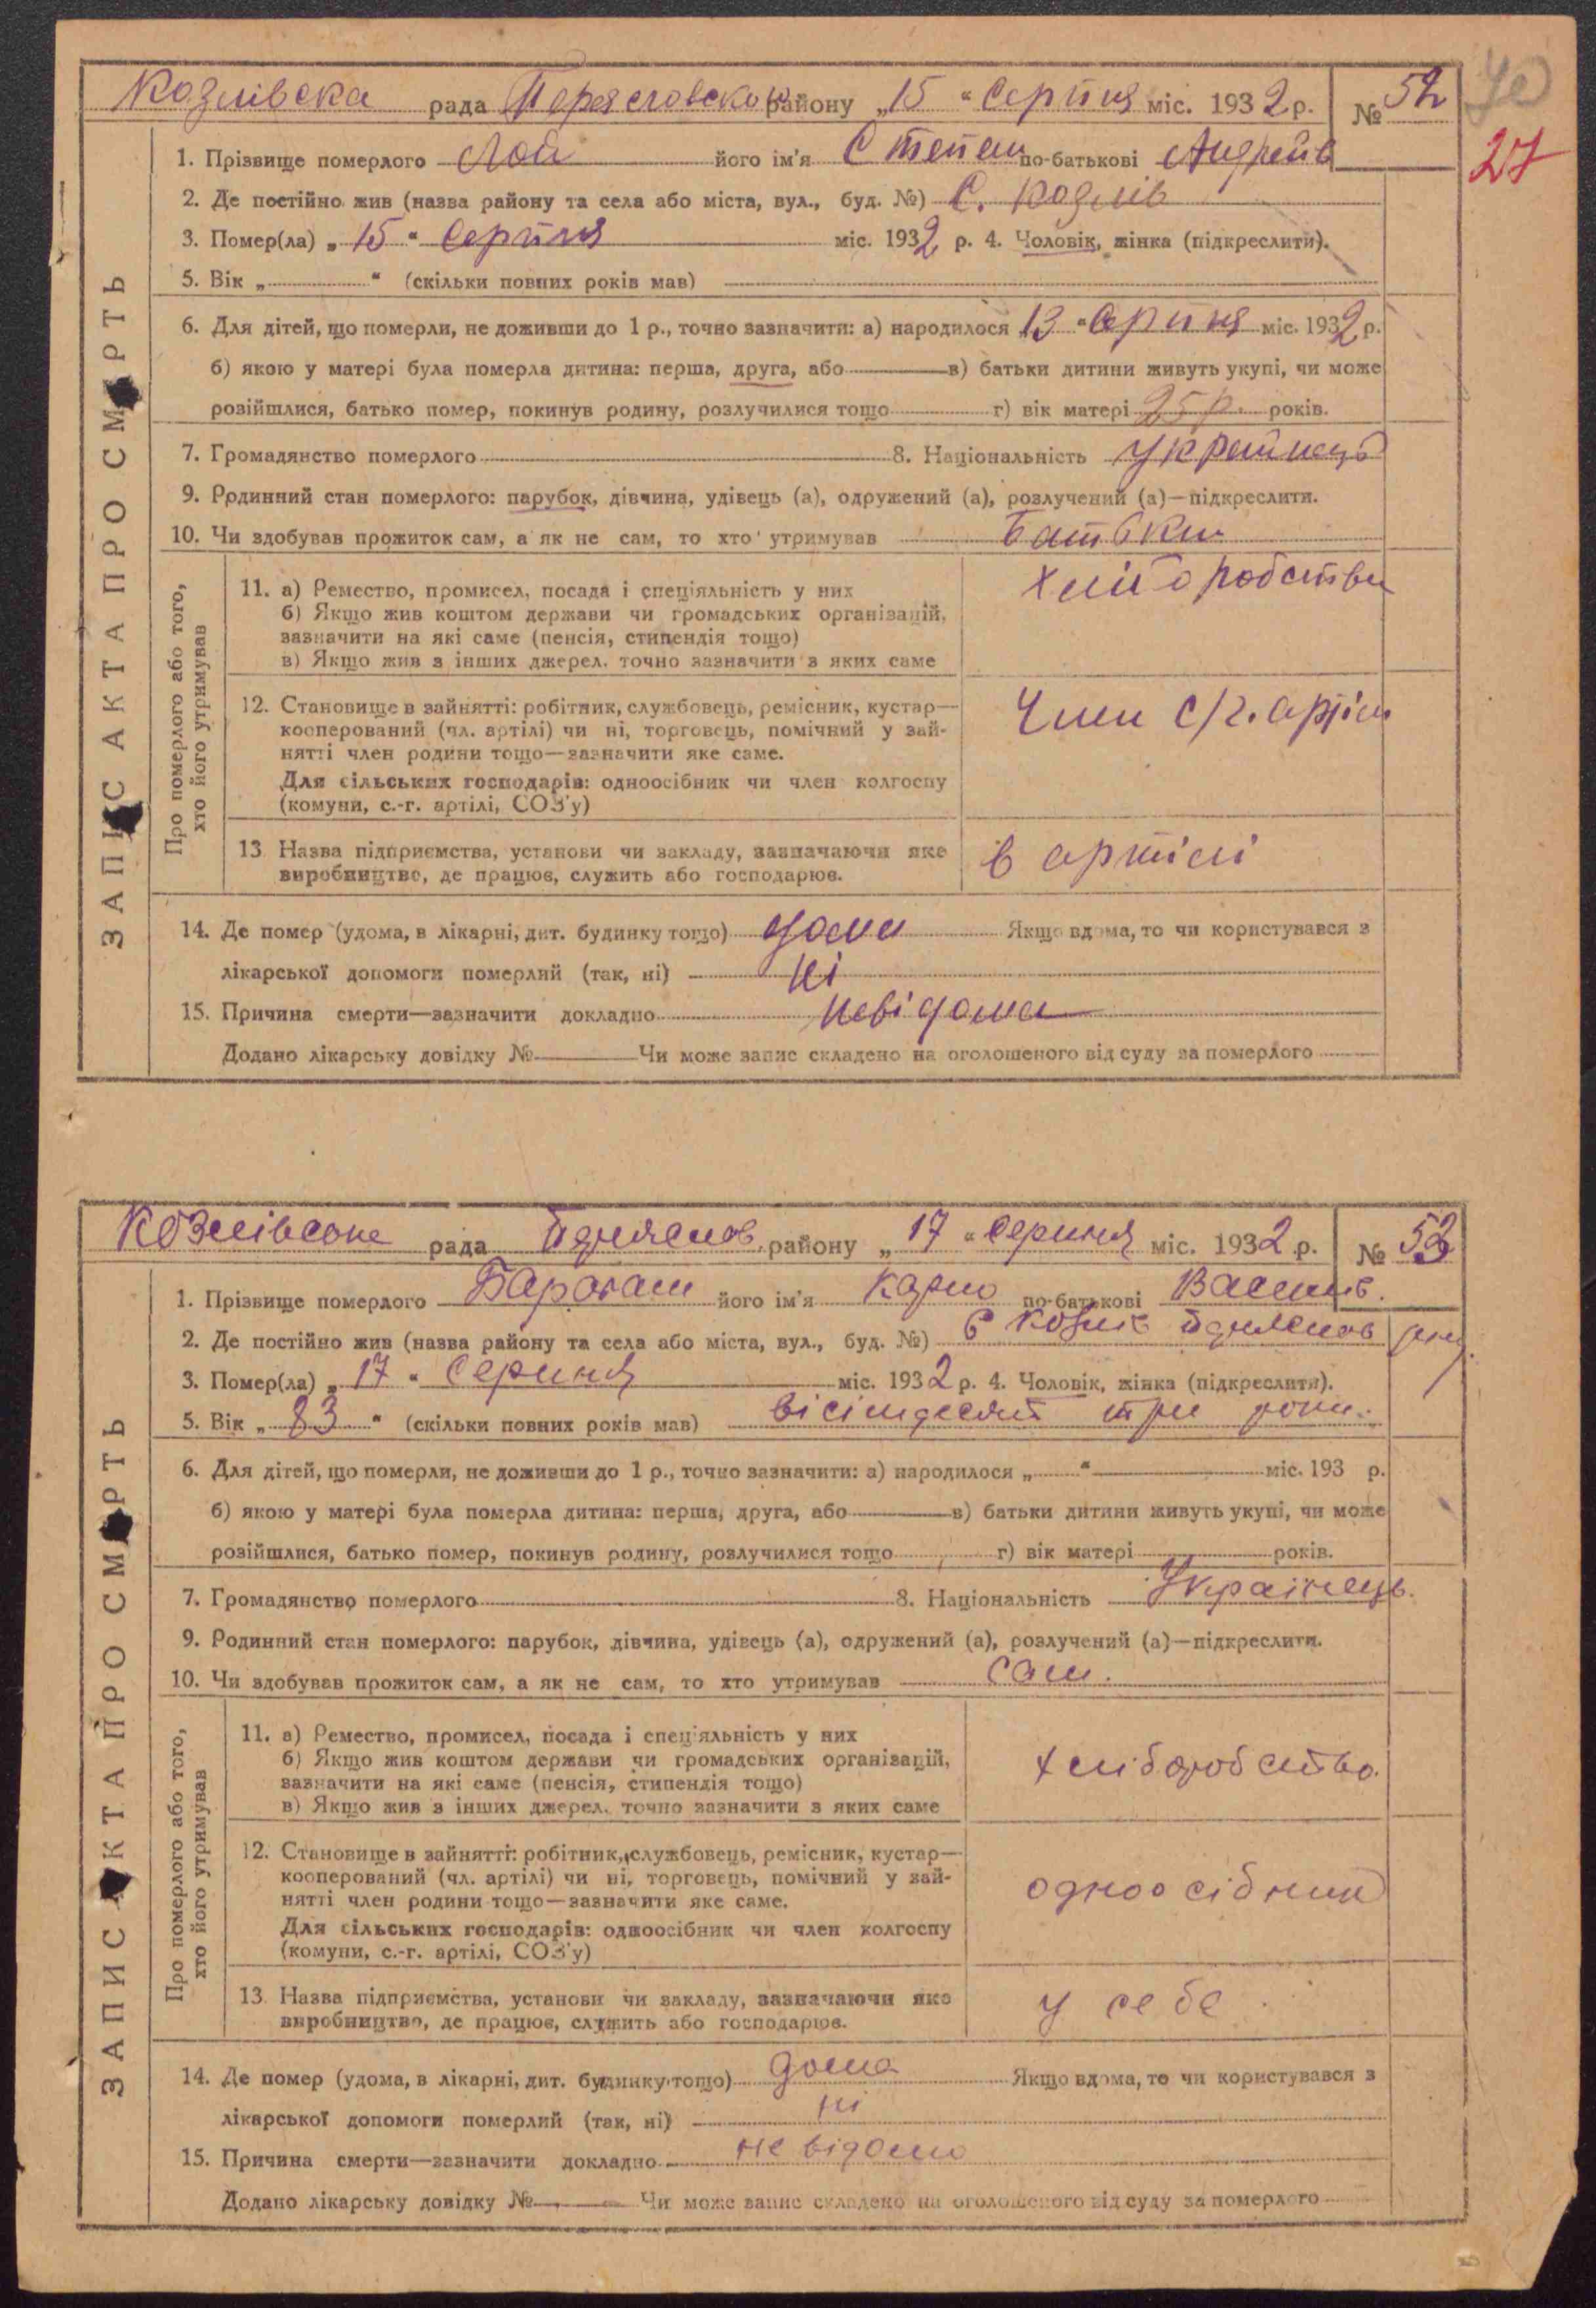 40
27
Козлівска рада Переясловского району „15“ Серпня міс. 1932 р. № 52
ЗАПИС АКТА ПРО СМЕРТЬ
1. Прізвище померлого Лой його ім'я Степан по-батькові Андреїв
2. Де постійно жив (назва району та села або міста, вул., буд. №) С. Козлів
3. Помер(ла) „15“ Серпня міс. 1932 р. 4. Чоловік, жінка (підкреслити).
5. Вік „ “ (скільки повних років мав)
6. Для дітей, що померли, не доживши до 1 р., точно зазначити: а) народилося „13“ Серпня міс. 1932 р.
б) якою у матері була померла дитина: перша, друга, або в) батьки дитини живуть укупі, чи може
розійшлися, батько помер, покинув родину, розлучилися тощо г) вік матері 25 р. років.
7. Громадянство померлого 8. Національність Украинець
9. Родинний стан померлого: парубок, дівчина, удівець (а), одружений (а), розлучений (а)—підкреслити.
10. Чи здобував прожиток сам, а як не сам, то хто утримував батьки
Про померлого або того,
хто його утримував
11. а) Ремество, промисел, посада і спеціяльність у них
б) Якщо жив коштом держави чи громадських організацій,
зазначити на які саме (пенсія, стипендія тощо)
в) Якщо жив з інших джерел, точно зазначити з яких саме
12. Становище в зайнятті: робітник, службовець, ремісник, кустар—
кооперований (чл. артілі) чи ні, торговець, помічний у зай-
нятті член родини тощо—зазначити яке саме.
Для сільських господарів: одноосібник чи член колгоспу
(комуни, с.-г. артілі, СОЗ'у)
Член с/г. артіли
13. Назва підприємства, установи чи закладу, зазначаючи яке
виробництво, де працює, служить або господарює.
в артілі
14. Де помер (удома, в лікарні, дит. будинку тощо) дома Якщо вдома, то чи користувався з
лікарської допомоги померлий (так, ні) ні
15. Причина смерти—зазначити докладно невідома
Додано лікарську довідку № Чи може запис складено на оголошеного від суду за померлого
Козлівське рада району „17“ Серпня міс. 1932 р. № 53
ЗАПИС АКТА ПРО СМЕРТЬ
1. Прізвище померлого його ім'я Карпо по-батькові Василів.
2. Де постійно жив (назва району та села або міста, вул., буд. №) с Козлів
3. Помер(ла) „17“ Серпня міс. 1932 р. 4. Чоловік, жінка (підкреслити).
5. Вік „83“ (скільки повних років мав) вісімдесят три роки.
6. Для дітей, що померли, не доживши до 1 р., точно зазначити: а) народилося „ “ міс. 193 р.
б) якою у матері була померла дитина: перша, друга, або в) батьки дитини живуть укупі, чи може
розійшлися, батько помер, покинув родину, розлучилися тощо г) вік матері років.
7. Громадянство померлого 8. Національність Українець.
9. Родинний стан померлого: парубок, дівчина, удівець (а), одружений (а), розлучений (а)—підкреслити.
10. Чи здобував прожиток сам, а як не сам, то хто утримував сам.
Про померлого або того,
хто його утримував
11. а) Ремество, промисел, посада і спеціяльність у них
б) Якщо жив коштом держави чи громадських організацій,
зазначити на які саме (пенсія, стипендія тощо)
в) Якщо жив з інших джерел, точно зазначити з яких саме
хліборобство.
12. Становище в зайнятті: робітник, службовець, ремісник, кустар—
кооперований (чл. артілі) чи ні, торговець, помічний у зай-
нятті член родини тощо—зазначити яке саме.
Для сільських господарів: одноосібник чи член колгоспу
(комуни, с.-г. артілі, СОЗ'у)
одноосібник
13. Назва підприємства, установи чи закладу, зазначаючи яке
виробництво, де працює, служить або господарює.
у себе
14. Де помер (удома, в лікарні, дит. будинку тощо) дома Якщо вдома, то чи користувався з
лікарської допомоги померлий (так, ні) ні
15. Причина смерти—зазначити докладно не відомо
Додано лікарську довідку № Чи може запис складено на оголошеного від суду за померлого